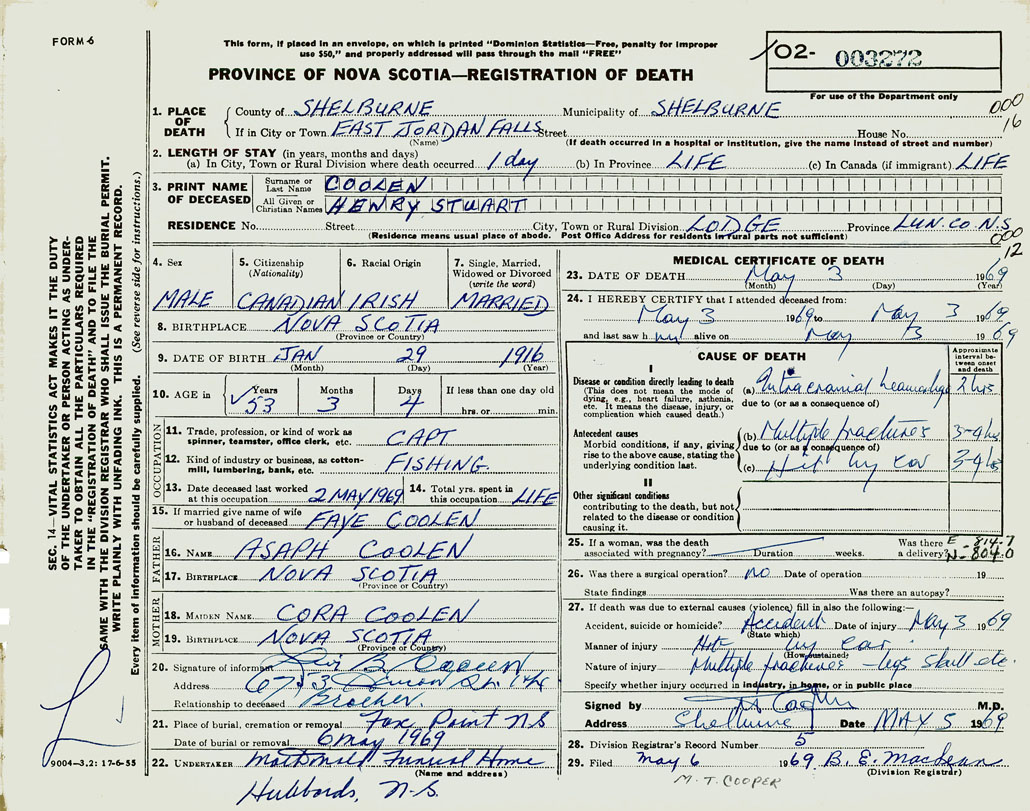 FORM 6
This form, if placed in an envelope, on which is printed "Dominion Statistics—Free, penalty for improper
use $50," and properly addressed will pass through the mail "FREE"
PROVINCE OF NOVA SCOTIA—REGISTRATION OF DEATH
02- 003272
For use of the Department only
000
16
1. PLACE OF DEATH
County of SHELBURNE Municipality of SHELBURNE
If in City or Town EAST JORDAN FALLS Street House No.
(Name) (If death occurred in a hospital or institution, give the name instead of street and number)
2. LENGTH OF STAY (in years, months and days)
(a) In City, Town or Rural Division where death occurred 1 day (b) In Province LIFE (c) In Canada (if immigrant) LIFE
3. PRINT NAME OF DECEASED
Surname or Last Name COOLEN
All Given or Christian Names HENRY STUART
RESIDENCE No. Street City, Town or Rural Division LODGE Province LUN. CO. N.S
(Residence means usual place of abode. Post Office Address for residents in rural parts not sufficient)
000
12
4. Sex MALE
5. Citizenship (Nationality) CANADIAN
6. Racial Origin IRISH
7. Single, Married, Widowed or Divorced (write the word) MARRIED
8. BIRTHPLACE NOVA SCOTIA
(Province or Country)
9. DATE OF BIRTH JAN 29 1916
(Month) (Day) (Year)
10. AGE in Years 53 Months 3 Days 4 If less than one day old
hrs. or min.
OCCUPATION
11. Trade, profession, or kind of work as spinner, teamster, office clerk, etc. CAPT
12. Kind of industry or business, as cotton-mill, lumbering, bank, etc. FISHING.
13. Date deceased last worked at this occupation 2 MAY 1969
14. Total yrs. spent in this occupation LIFE
15. If married give name of wife or husband of deceased FAYE COOLEN
FATHER
16. NAME ASAPH COOLEN
17. BIRTHPLACE NOVA SCOTIA
(Province or Country)
MOTHER
18. MAIDEN NAME CORA COOLEN
19. BIRTHPLACE NOVA SCOTIA
(Province or Country)
20. Signature of informant B. Coolen
Address
Relationship to deceased Brother.
21. Place of burial, cremation or removal Fox Point N S
Date of burial or removal 6 may 1969
22. UNDERTAKER MacDonald Funeral Home
(Name and address)
Hubbards, N.S.
MEDICAL CERTIFICATE OF DEATH
23. DATE OF DEATH May 3 1969
(Month) (Day) (Year)
24. I HEREBY CERTIFY that I attended deceased from:
May 3 1969 to May 3 1969
and last saw him alive on May 3 1969
CAUSE OF DEATH
Approximate interval between onset and death
I
Disease or condition directly leading to death
(This does not mean the mode of dying, e.g., heart failure, asthenia, etc. It means the disease, injury, or complication which caused death.)
(a) Intracranial heamorhage 2 hrs
due to (or as a consequence of)
Antecedent causes
Morbid conditions, if any, giving rise to the above cause, stating the underlying condition last.
(b) Multiple fractures 3-4 hrs
due to (or as a consequence of)
(c) Hit by car 3-4 hrs
II
Other significant conditions
contributing to the death, but not related to the disease or condition causing it.
25. If a woman, was the death associated with pregnancy? Duration weeks. Was there a delivery?
E- 814.7
N- 804.0
26. Was there a surgical operation? no Date of operation 19
State findings Was there an autopsy?
27. If death was due to external causes (violence) fill in also the following:—
Accident, suicide or homicide? Accident Date of injury May 3 1969
(State which)
Manner of injury Hit by car
(How sustained)
Nature of injury Multiple fractures - legs skull etc.
Specify whether injury occurred in industry, in home, or in public place
Signed by M.D.
Address Shelburne Date MAY 5 1969
28. Division Registrar's Record Number 5
29. Filed May 6 1969 B. E. MacLean
(Division Registrar)
M. T. COOPER
SEC. 14—VITAL STATISTICS ACT MAKES IT THE DUTY
OF THE UNDERTAKER OR PERSON ACTING AS UNDER-
TAKER TO OBTAIN ALL THE PARTICULARS REQUIRED
IN THE "REGISTRATION OF DEATH" AND TO FILE THE
SAME WITH THE DIVISION REGISTRAR WHO SHALL ISSUE THE BURIAL PERMIT.
WRITE PLAINLY WITH UNFADING INK. THIS IS A PERMANENT RECORD.
Every item of information should be carefully supplied. (See reverse side for instructions.)
9004—3.2: 17-6-55